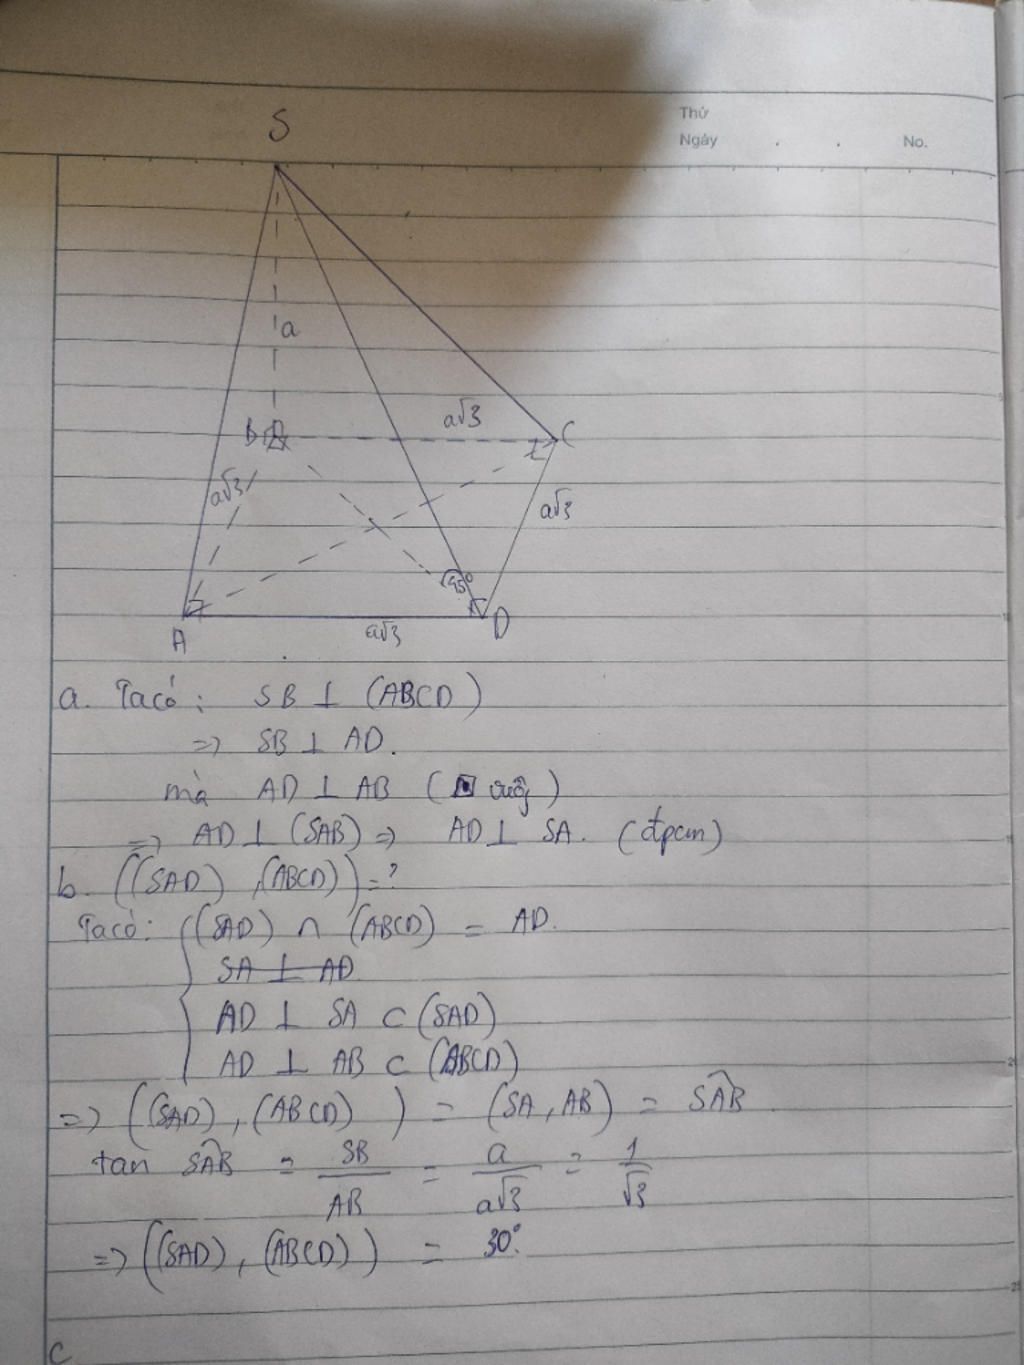 Thứ
Ngày . . No.
S
a
B
a√3
C
a√3
a√3
45°
A
a√3
D
a. Ta có: SB ⊥ (ABCD)
=> SB ⊥ AD.
mà AD ⊥ AB ( vuôg)
=> AD ⊥ (SAB) => AD ⊥ SA. (đpcm)
b. ((SAD), (ABCD)) = ?
Ta có: (SAD) ∩ (ABCD) = AD.
SA ⊥ AD
AD ⊥ SA ⊂ (SAD)
AD ⊥ AB ⊂ (ABCD)
=> ((SAD), (ABCD)) = (SA, AB) = SAB
tan SAB = SB/AB = a/a√3 = 1/√3
=> ((SAD), (ABCD)) = 30°.
C